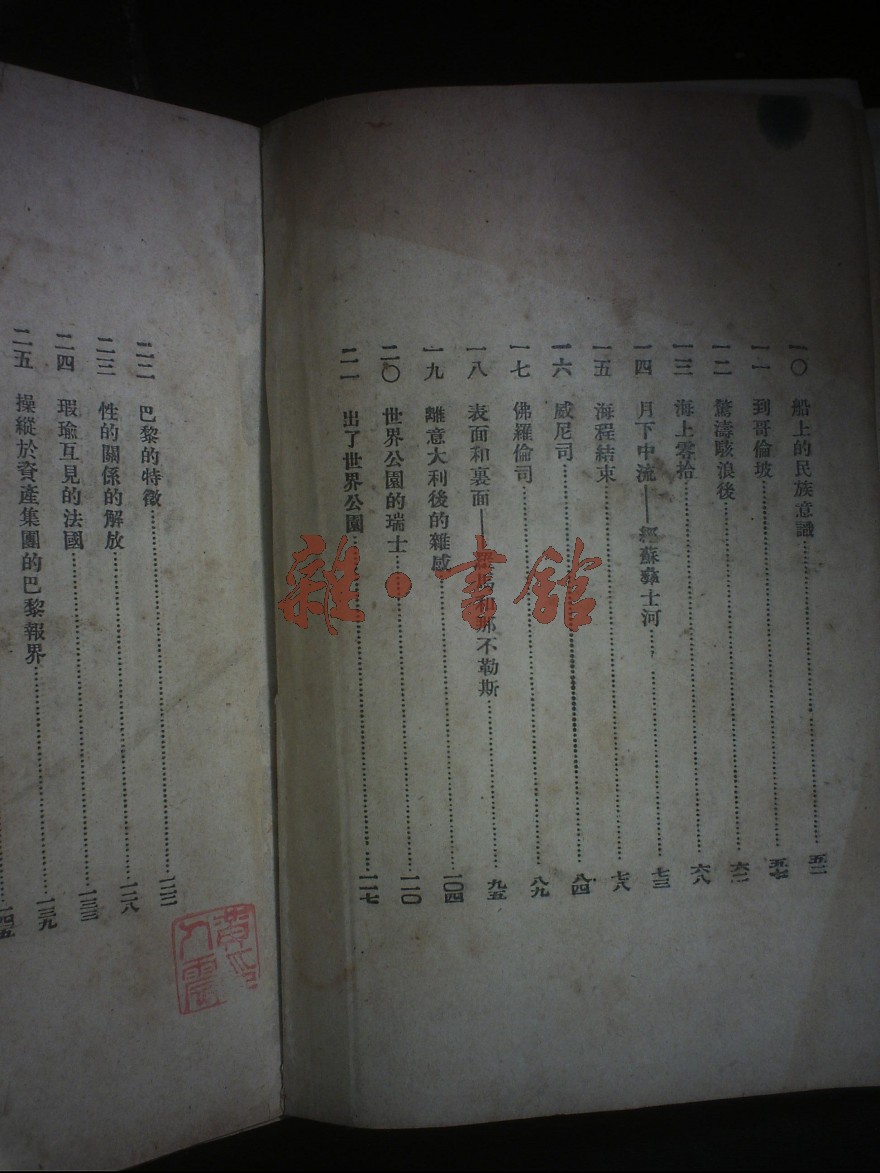 一〇 船上的民族意識……五二
一一 到哥倫坡……五七
一二 驚濤駭浪後……六二
一三 海上零拾……六八
一四 月下中流——經蘇彝士河……七三
一五 海程結束……七八
一六 威尼司……八四
一七 佛羅倫司……八九
一八 表面和裏面——羅馬和那不勒斯……九五
一九 離意大利後的雜感……一〇四
二〇 世界公園的瑞士……一一〇
二一 出了世界公園……一一七
二二 巴黎的特徵……一二二
二三 性的關係的解放……一二八
二四 瑕瑜互見的法國……一三三
二五 操縱於資產集團的巴黎報界……一三九
一四五
雜·書館